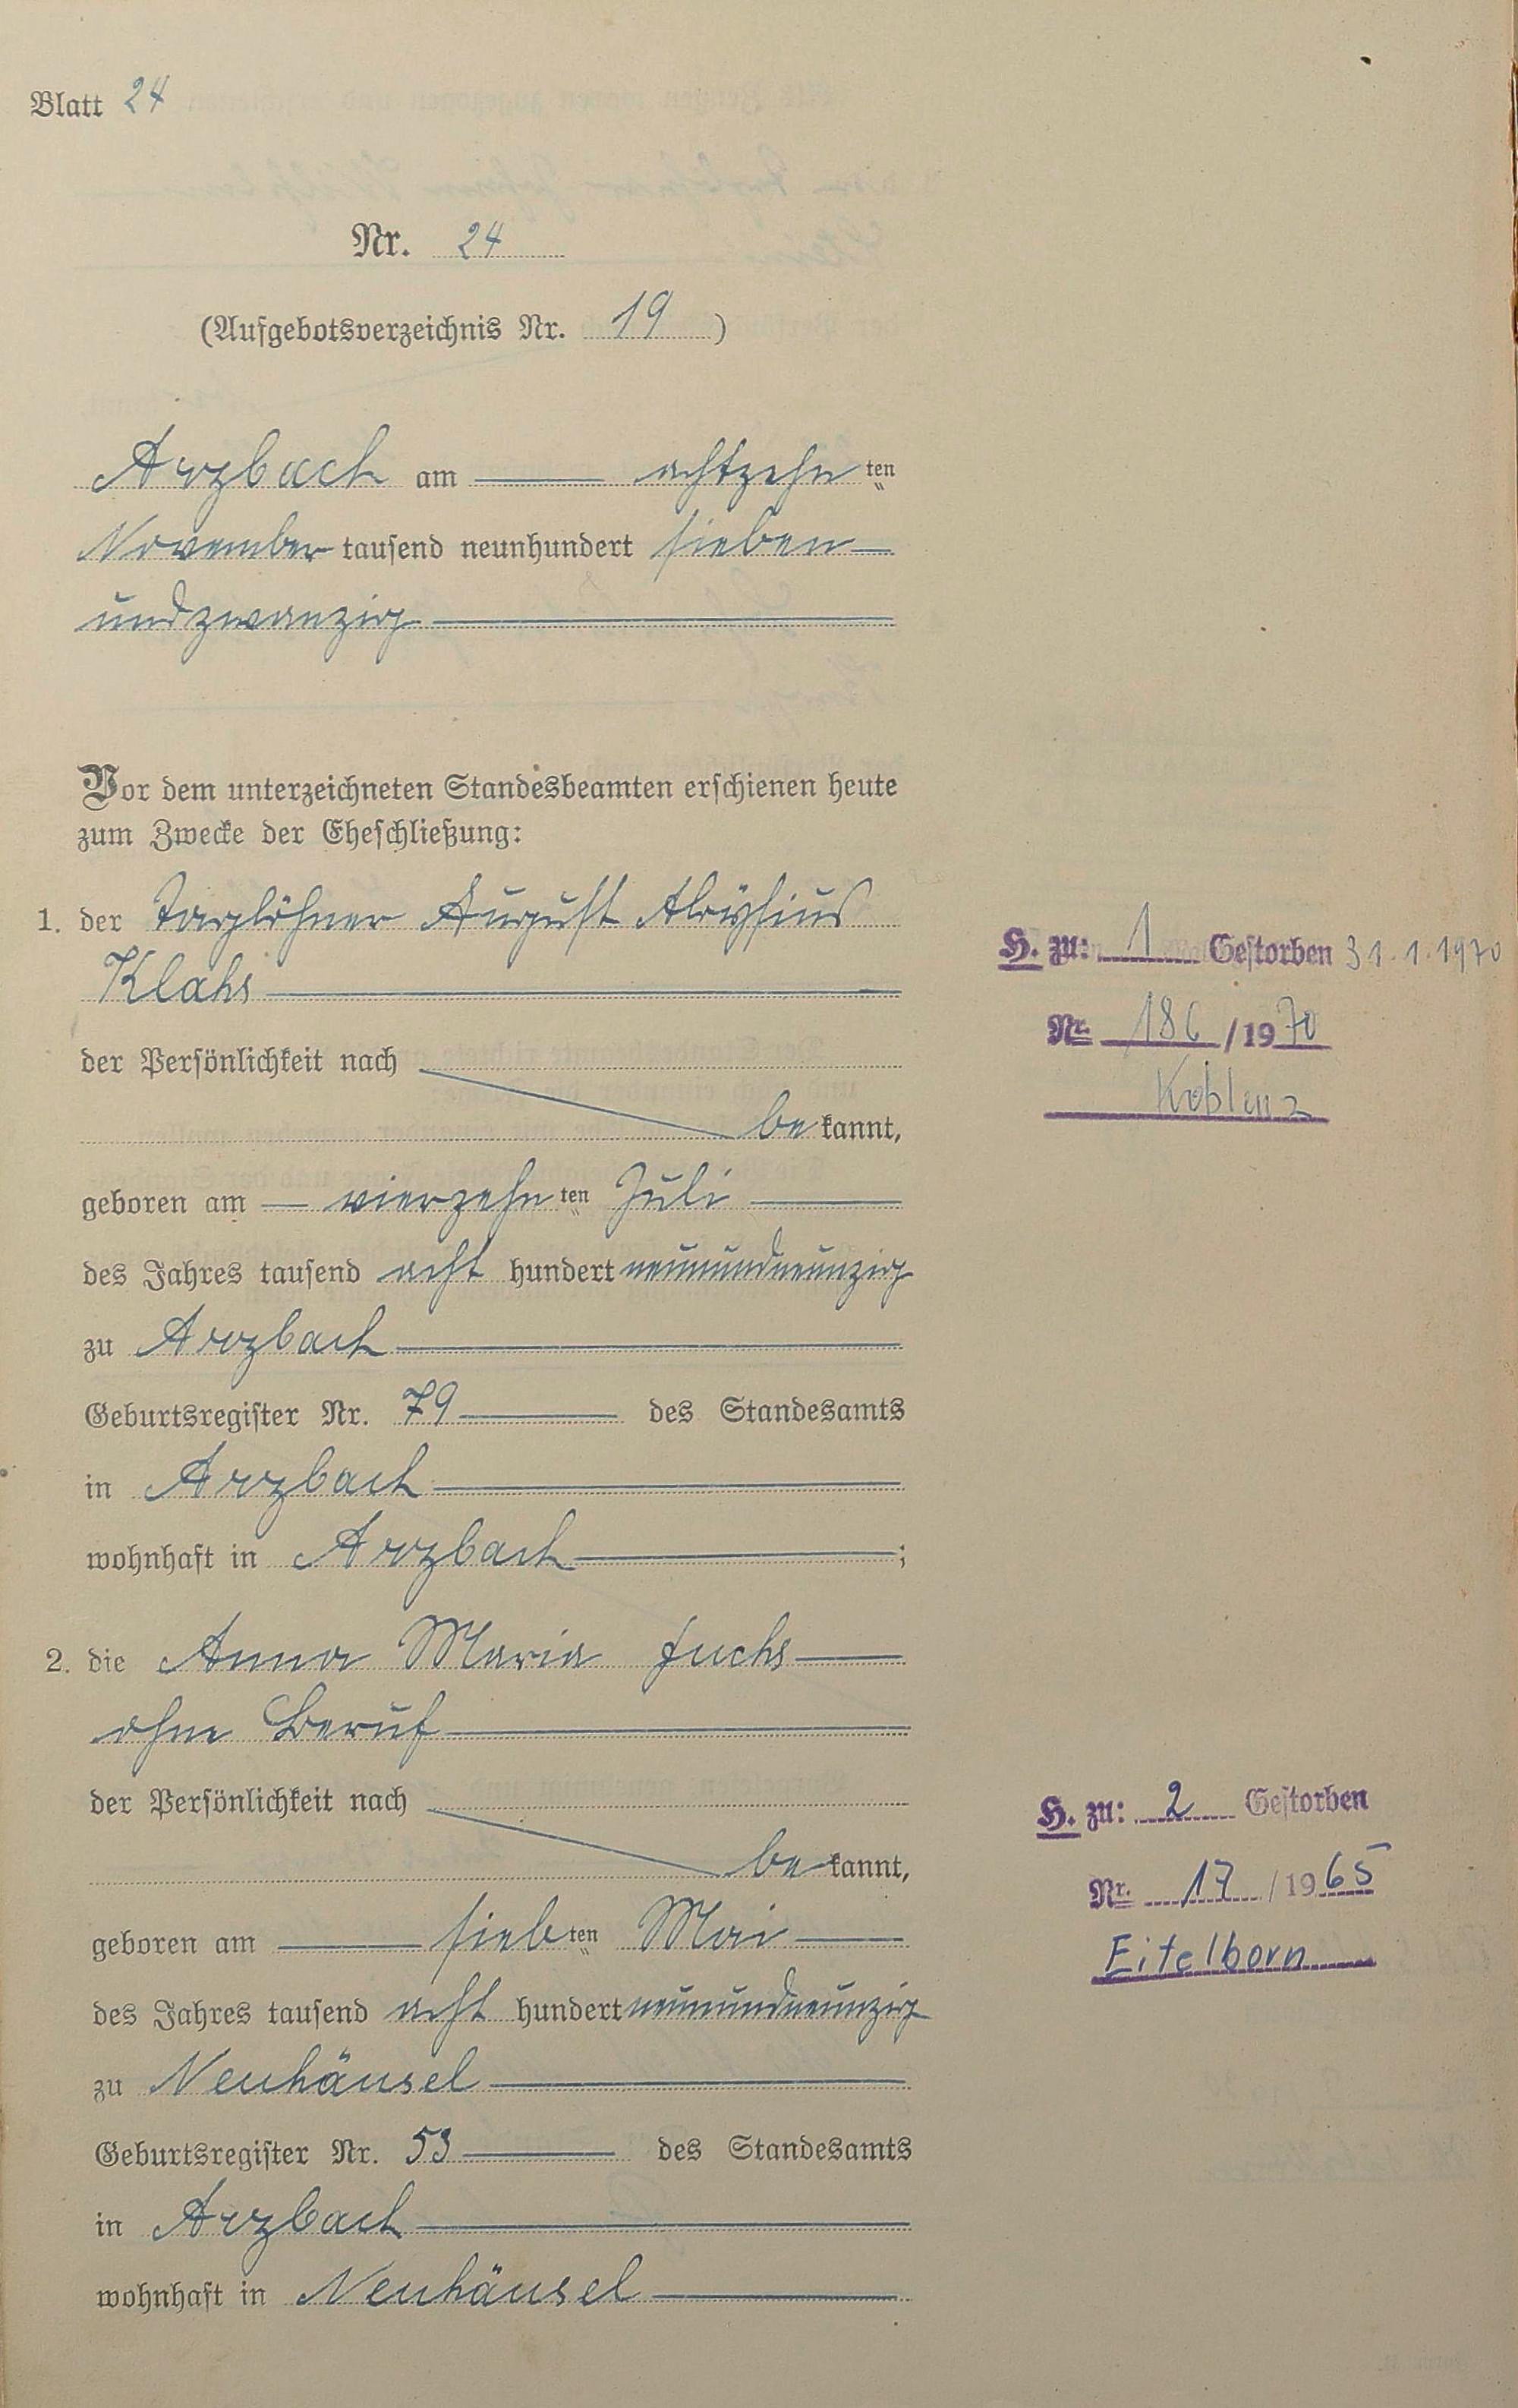 Blatt 24
Nr. 24
(Aufgebotsverzeichnis Nr. 19)
Arzbach am achtzehn ten
November tausend neunhundert sieben
undzwanzig
Vor dem unterzeichneten Standesbeamten erschienen heute
zum Zwecke der Eheschließung:
1. der Taglöhner August Aloysius
Klahs
der Persönlichkeit nach
be kannt,
geboren am vierzehn ten Juli
des Jahres tausend acht hundert neunundneunzig
zu Arzbach
Geburtsregister Nr. 79 des Standesamts
in Arzbach
wohnhaft in Arzbach;
2. die Anna Maria Fuchs
ohne Beruf
der Persönlichkeit nach
be kannt,
geboren am sieb ten Mai
des Jahres tausend acht hundert neunundneunzig
zu Neuhäusel
Geburtsregister Nr. 53 des Standesamts
in Arzbach
wohnhaft in Neuhäusel
H. zu: 1 Gestorben 31.1.1970
Nr. 186/1970
Koblenz
H. zu: 2 Gestorben
Nr. 17/1965
Eitelborn